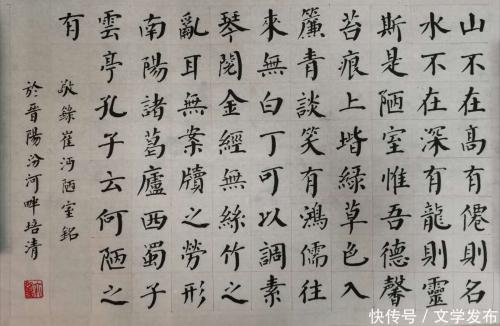 山不在高有僊則名
水不在深有龍則靈
斯是陋室惟吾德馨
苔痕上堦綠草色入
簾青談笑有鴻儒往
來無白丁可以調素
琴閱金經無絲竹之
亂耳無案牘之勞形
南陽諸葛廬西蜀子
雲亭孔子云何陋之
有
敬錄崔沔陋室銘
於晉陽汾河畔培清
快传号 / 文学发布